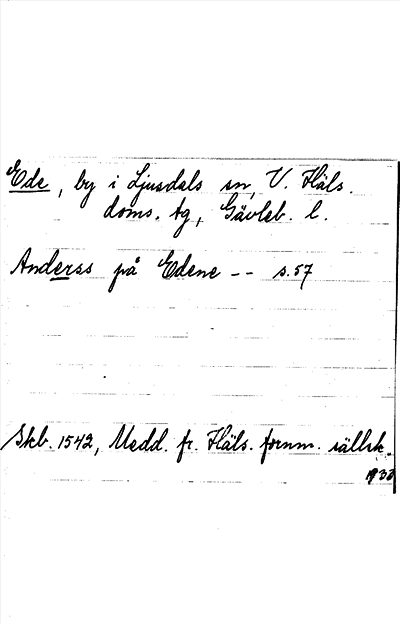 Ede, by i Ljusdals sn, V. Häls.
doms. tg, Gävleb. l.
Anderss på Edene -- s. 57
Skb. 1542, Medd. fr. Häls. fornm. sällsk.